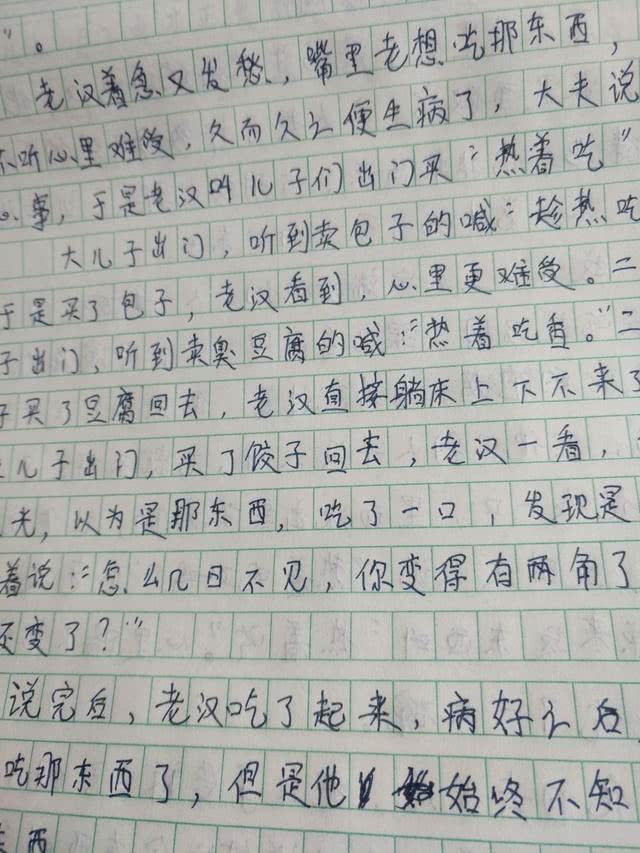 ”。
老汉着急又发愁，嘴里老想吃那东西，
听心里难受，久而久之便生病了，大夫说
心事，于是老汉叫儿子们出门买：“热着吃”
大儿子出门，听到卖包子的喊：“趁热吃
于是买了包子，老汉看到，心里更难受。二
子出门，听到卖臭豆腐的喊：“热着吃香。”二
子买了豆腐回去，老汉直接躺床上下不来了
儿子出门，买了饺子回去，老汉一看，
光，以为是那东西，吃了一口，发现是
着说：“怎么几日不见，你变得有两角了
变了？”
说完后，老汉吃了起来，病好之后
吃那东西了，但是他始终不知
西